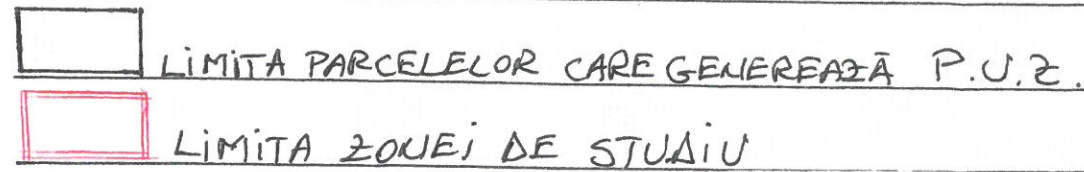 LIMITA PARCELELOR CARE GENEREAZĂ P.U.Z.
LIMITA ZONEI DE STUDIU